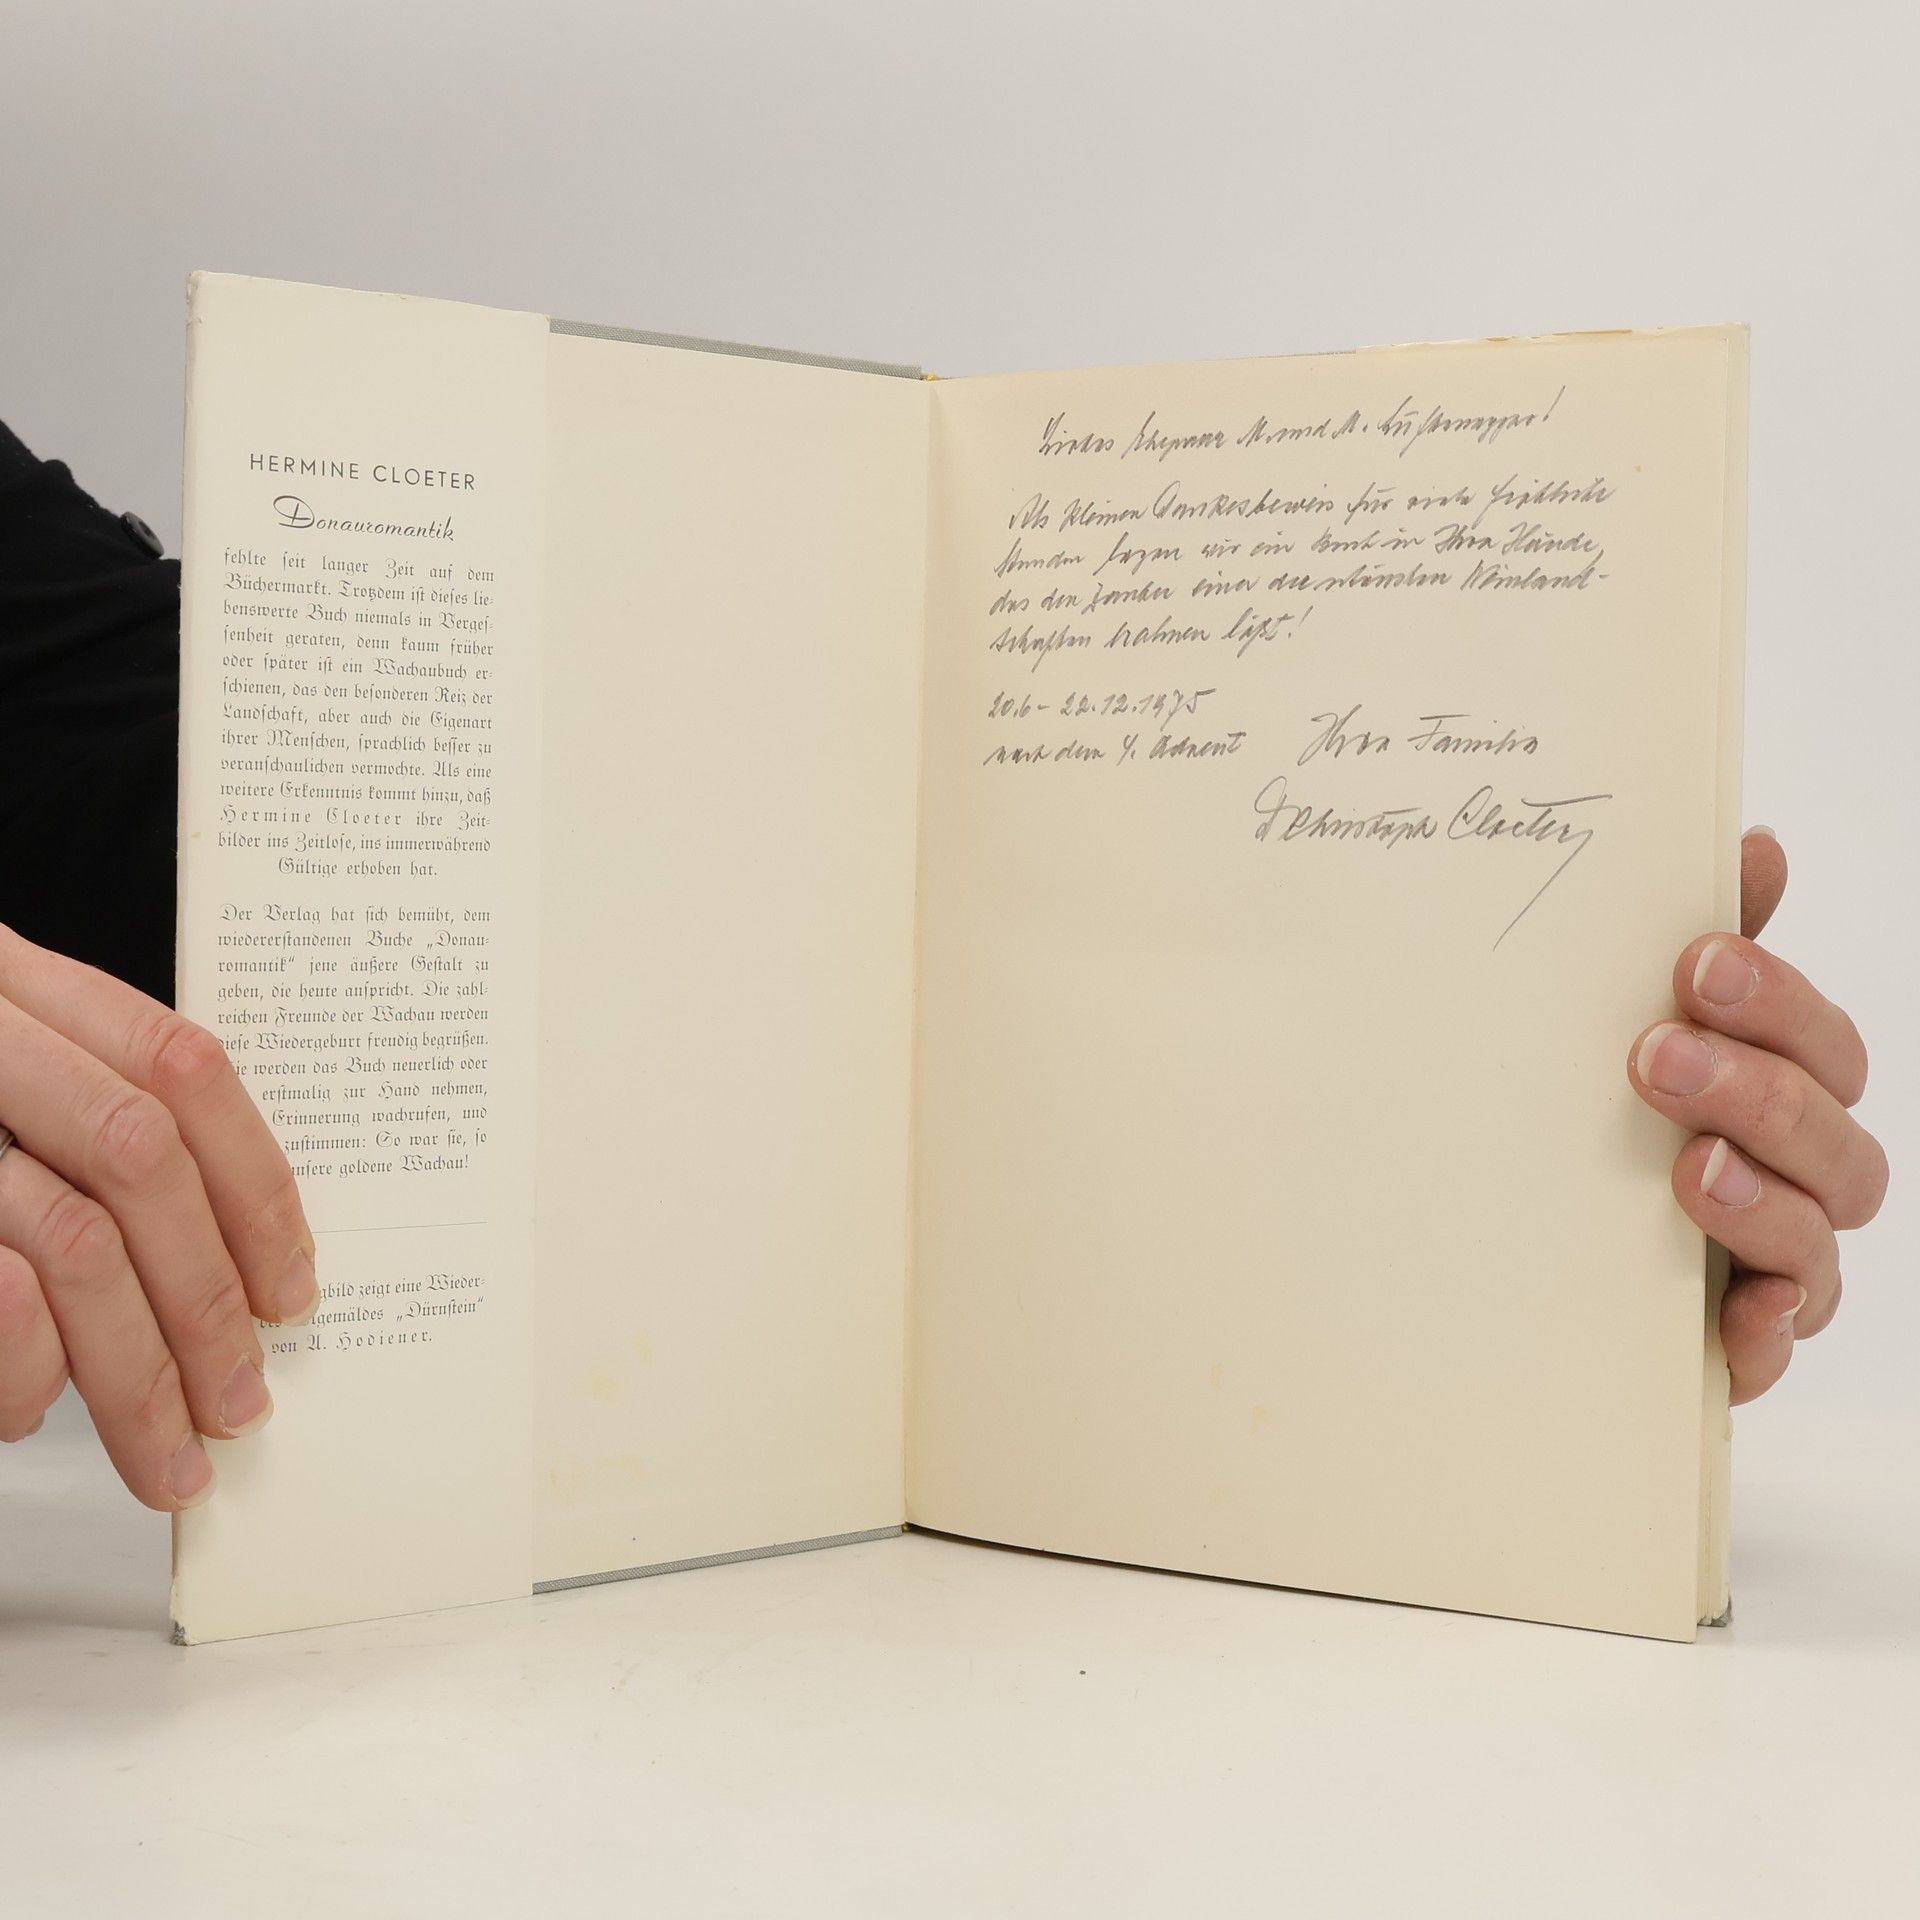 HERMINE CLOETER
Donauromantik
fehlte seit langer Zeit auf dem
Büchermarkt. Trotzdem ist dieses lie-
benswerte Buch niemals in Verges-
senheit geraten, denn kaum früher
oder später ist ein Wachaubuch er-
schienen, das den besonderen Reiz der
Landschaft, aber auch die Eigenart
ihrer Menschen, sprachlich besser zu
veranschaulichen vermochte. Als eine
weitere Erkenntnis kommt hinzu, daß
Hermine Cloeter ihre Zeit-
bilder ins Zeitlose, ins immerwährend
Gültige erhoben hat.
Der Verlag hat sich bemüht, dem
wiedererstandenen Buche „Donau-
romantik“ jene äußere Gestalt zu
geben, die heute anspricht. Die zahl-
reichen Freunde der Wachau werden
diese Wiedergeburt freudig begrüßen.
werden das Buch neuerlich oder
erstmalig zur Hand nehmen,
Erinnerung wachrufen, und
zustimmen: So war sie, so
unsere goldene Wachau!
zeigt eine Wieder-
„Dürnstein“
von A. Hodiener.
Liebes Ehepaar M. und M.
Als kleinen Dankesbeweis für viele fröhliche
Stunden legen wir ein Buch in Ihre Hände,
das den Zauber einer der schönsten Weinland-
schaften erahnen läßt!
22.12.1975
nach dem 4. Advent
Ihre Familie
Christoph Cloeter